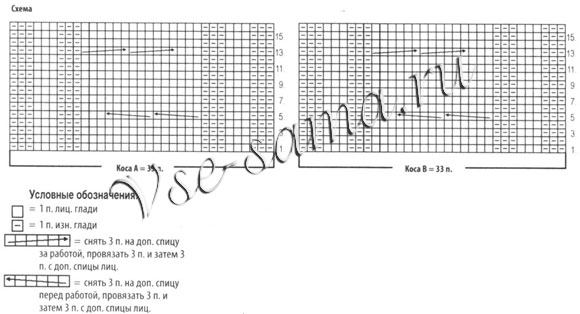 Схема
15
13
11
9
7
5
3
1
15
13
11
9
7
5
3
1
Коса А = 35 п.
Коса В = 33 п.
Vse-sama.ru
Условные обозначения:
= 1 п. лиц. глади
= 1 п. изн. глади
= снять 3 п. на доп. спицу
за работой, провязать 3 п. и затем 3
п. с доп. спицы лиц.
= снять 3 п. на доп. спицу
перед работой, провязать 3 п. и
затем 3 п. с доп. спицы лиц.